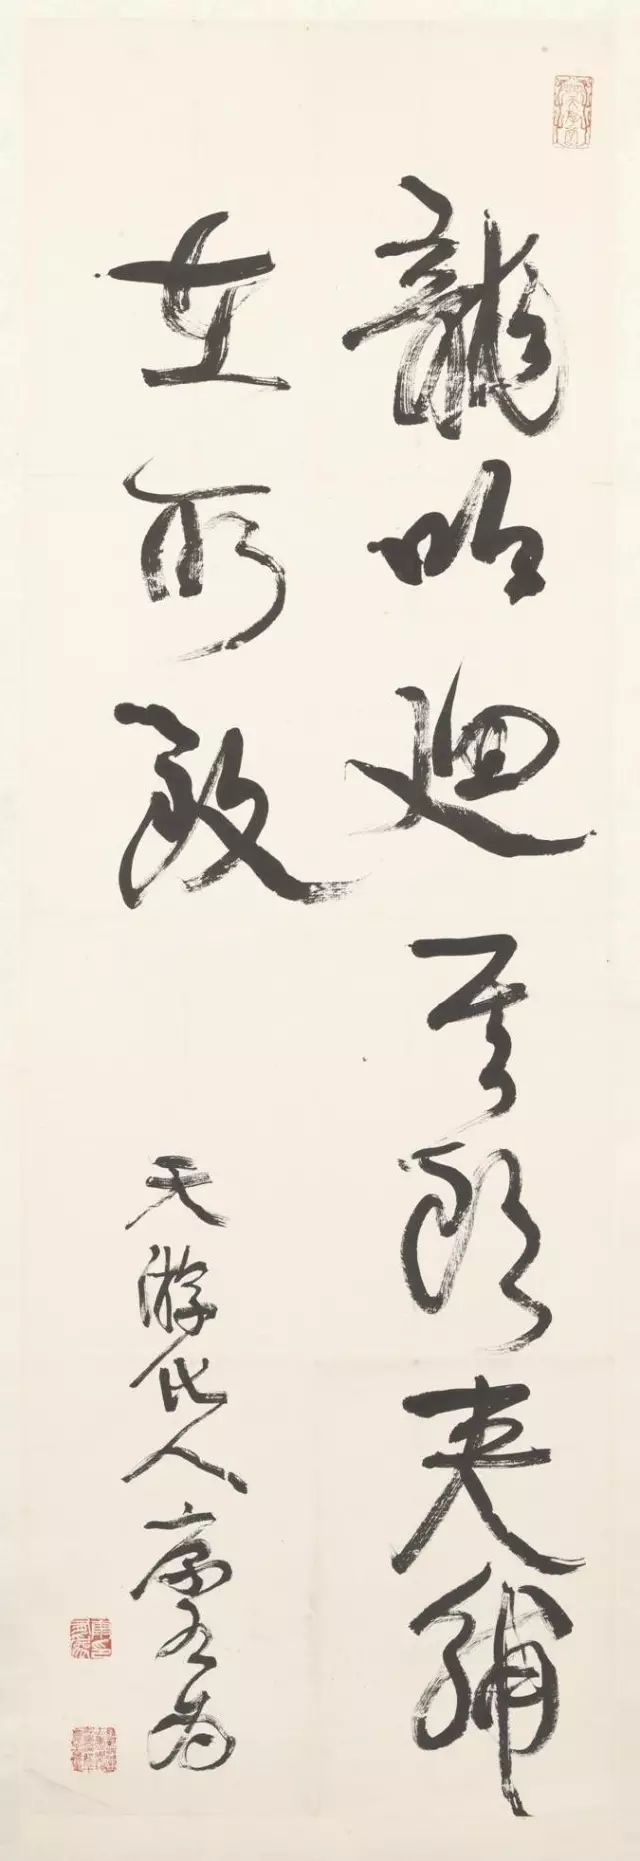 龍吟迴其頭夾輔
在所致
天游化人康有為
康有為印